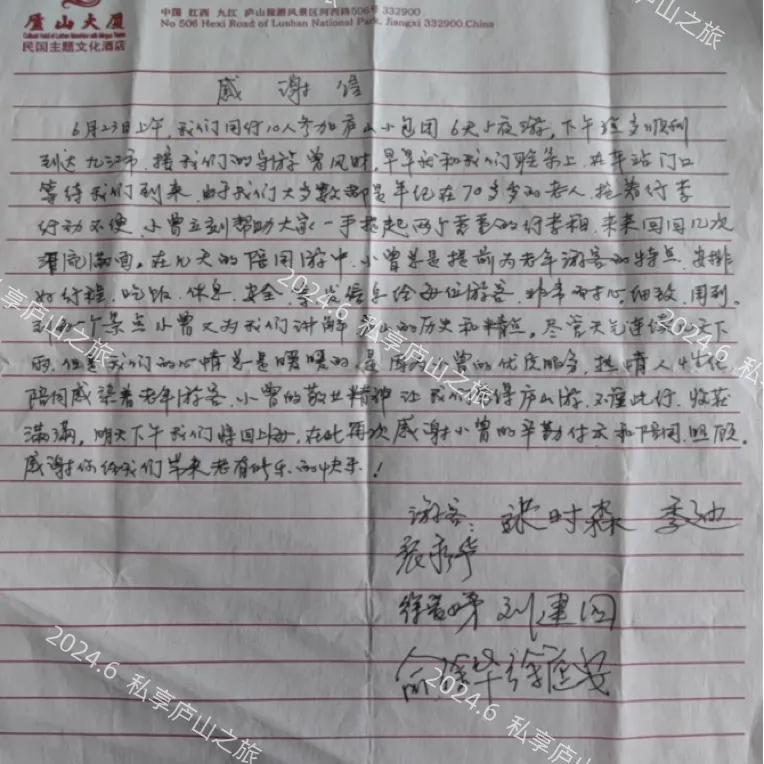 庐山大厦
民国主题文化酒店
中国 江西 九江 庐山旅游风景区河西路506号 332900
No 506 Hexi Road of Lushan National Park, Jiangxi 332900.China
感谢信
6月23日上午,我们同行10人参加庐山小包团6天5夜游,下午许多顺利
到达九江市,接我们的导游曾凤时,早早就和我们联系上,在车站门口
等待我们到来,由于我们大多数都是年纪在70多岁的老人,拖着行李
行动不便,小曾立刻帮助大家一手提起两个重重的行李箱,来来回回几次
满面。在几天的陪同游中,小曾总是提前为老年游客的特点,安排
好行程、吃饭、休息、安全、给每位游客,非常耐心,细致,周到。
到每一个景点小曾又为我们讲解庐山的历史和精点。尽管天气连续几天下
雨,但是我们的心情总是暖暖的,是因为小曾的优质服务,热情人性化
陪同感染着老年游客,小曾的敬业精神让我们值得庐山游,不虚此行,收获
满满,明天下午我们将回上海,在此再次感谢小曾的辛勤付出和陪同照顾。
感谢你给我们带来老有所乐的快乐!
游客:张时森 季
徐 刘建国
俞 徐
2024.6 私享庐山之旅
2024.6 私享庐山之旅
2024.6 私享庐山之旅